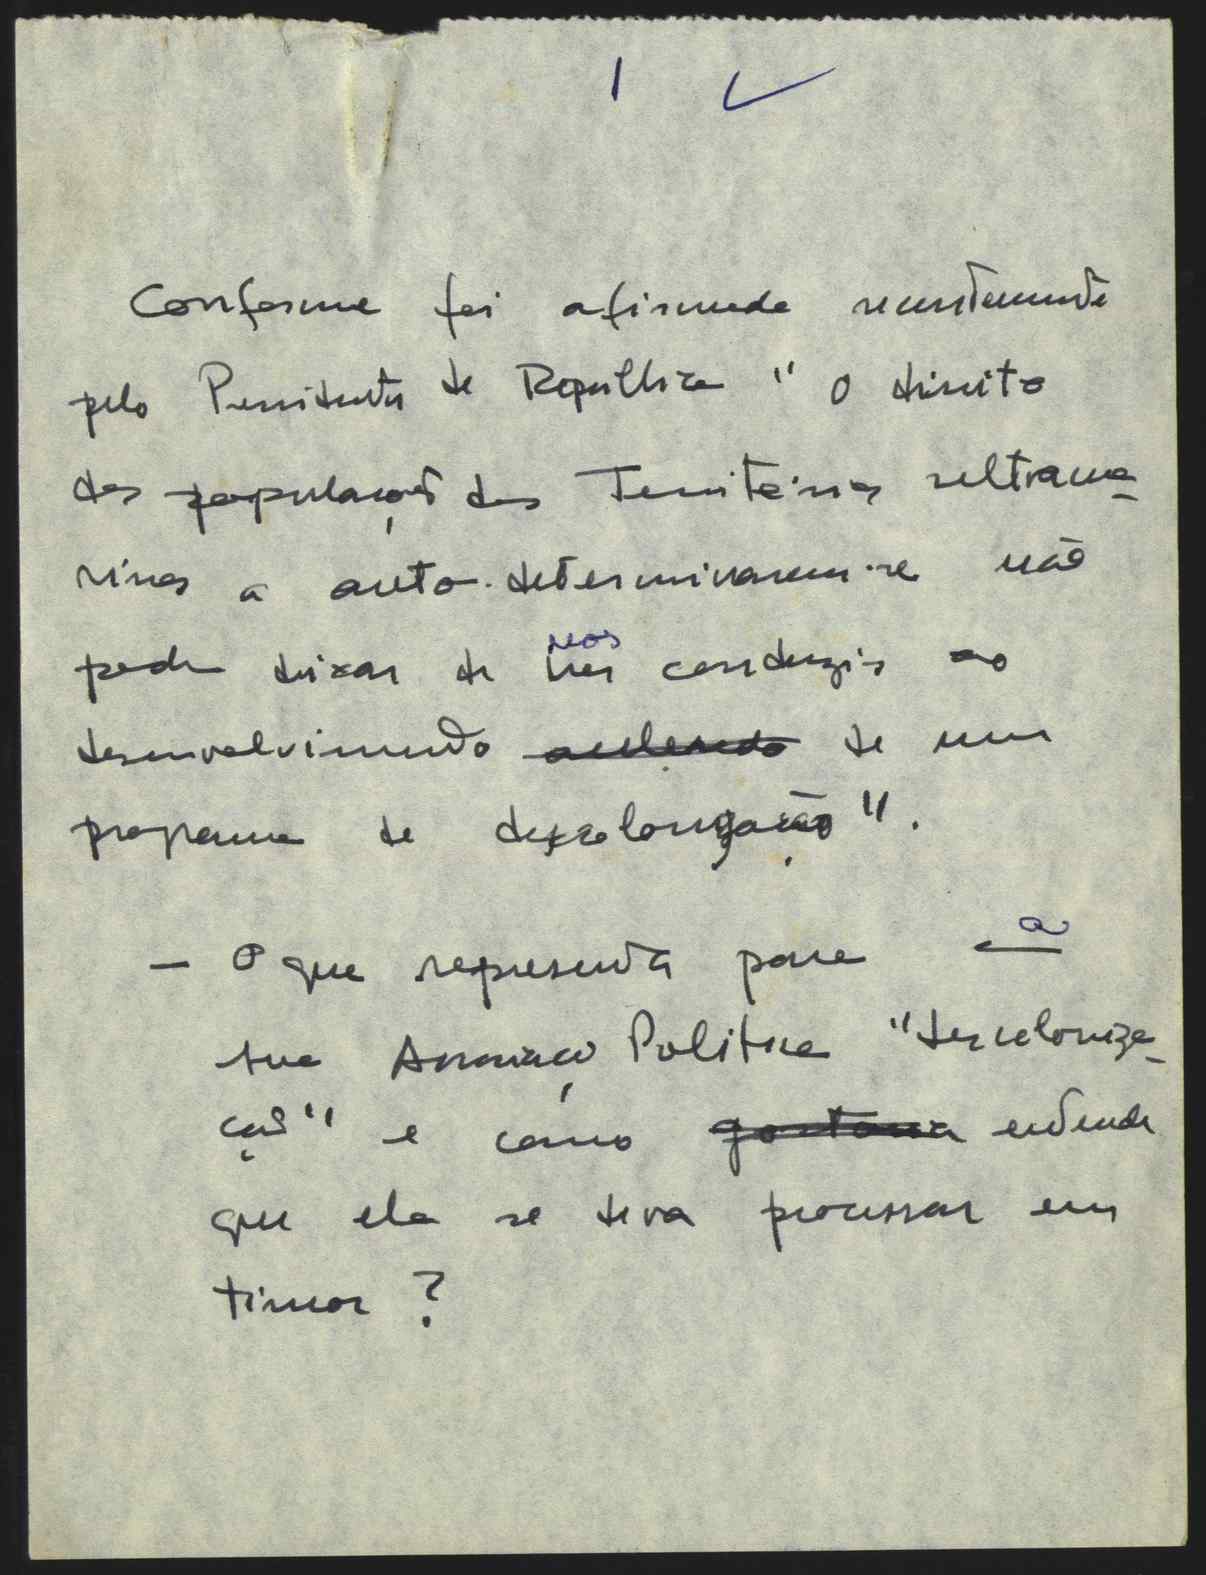 1
Conforme foi afirmado recentemente
pelo Presidente da República " O direito
das populações dos Territórios ultrama-
rinos a auto-determinarem-se não
pode deixar de nos conduzir ao
desenvolvimento acelerado de um
programa de descolonização".
- O que representa para a
sua Associação Política "descoloniza-
ção" e como gostaria entende
que ela se deva processar em
Timor ?